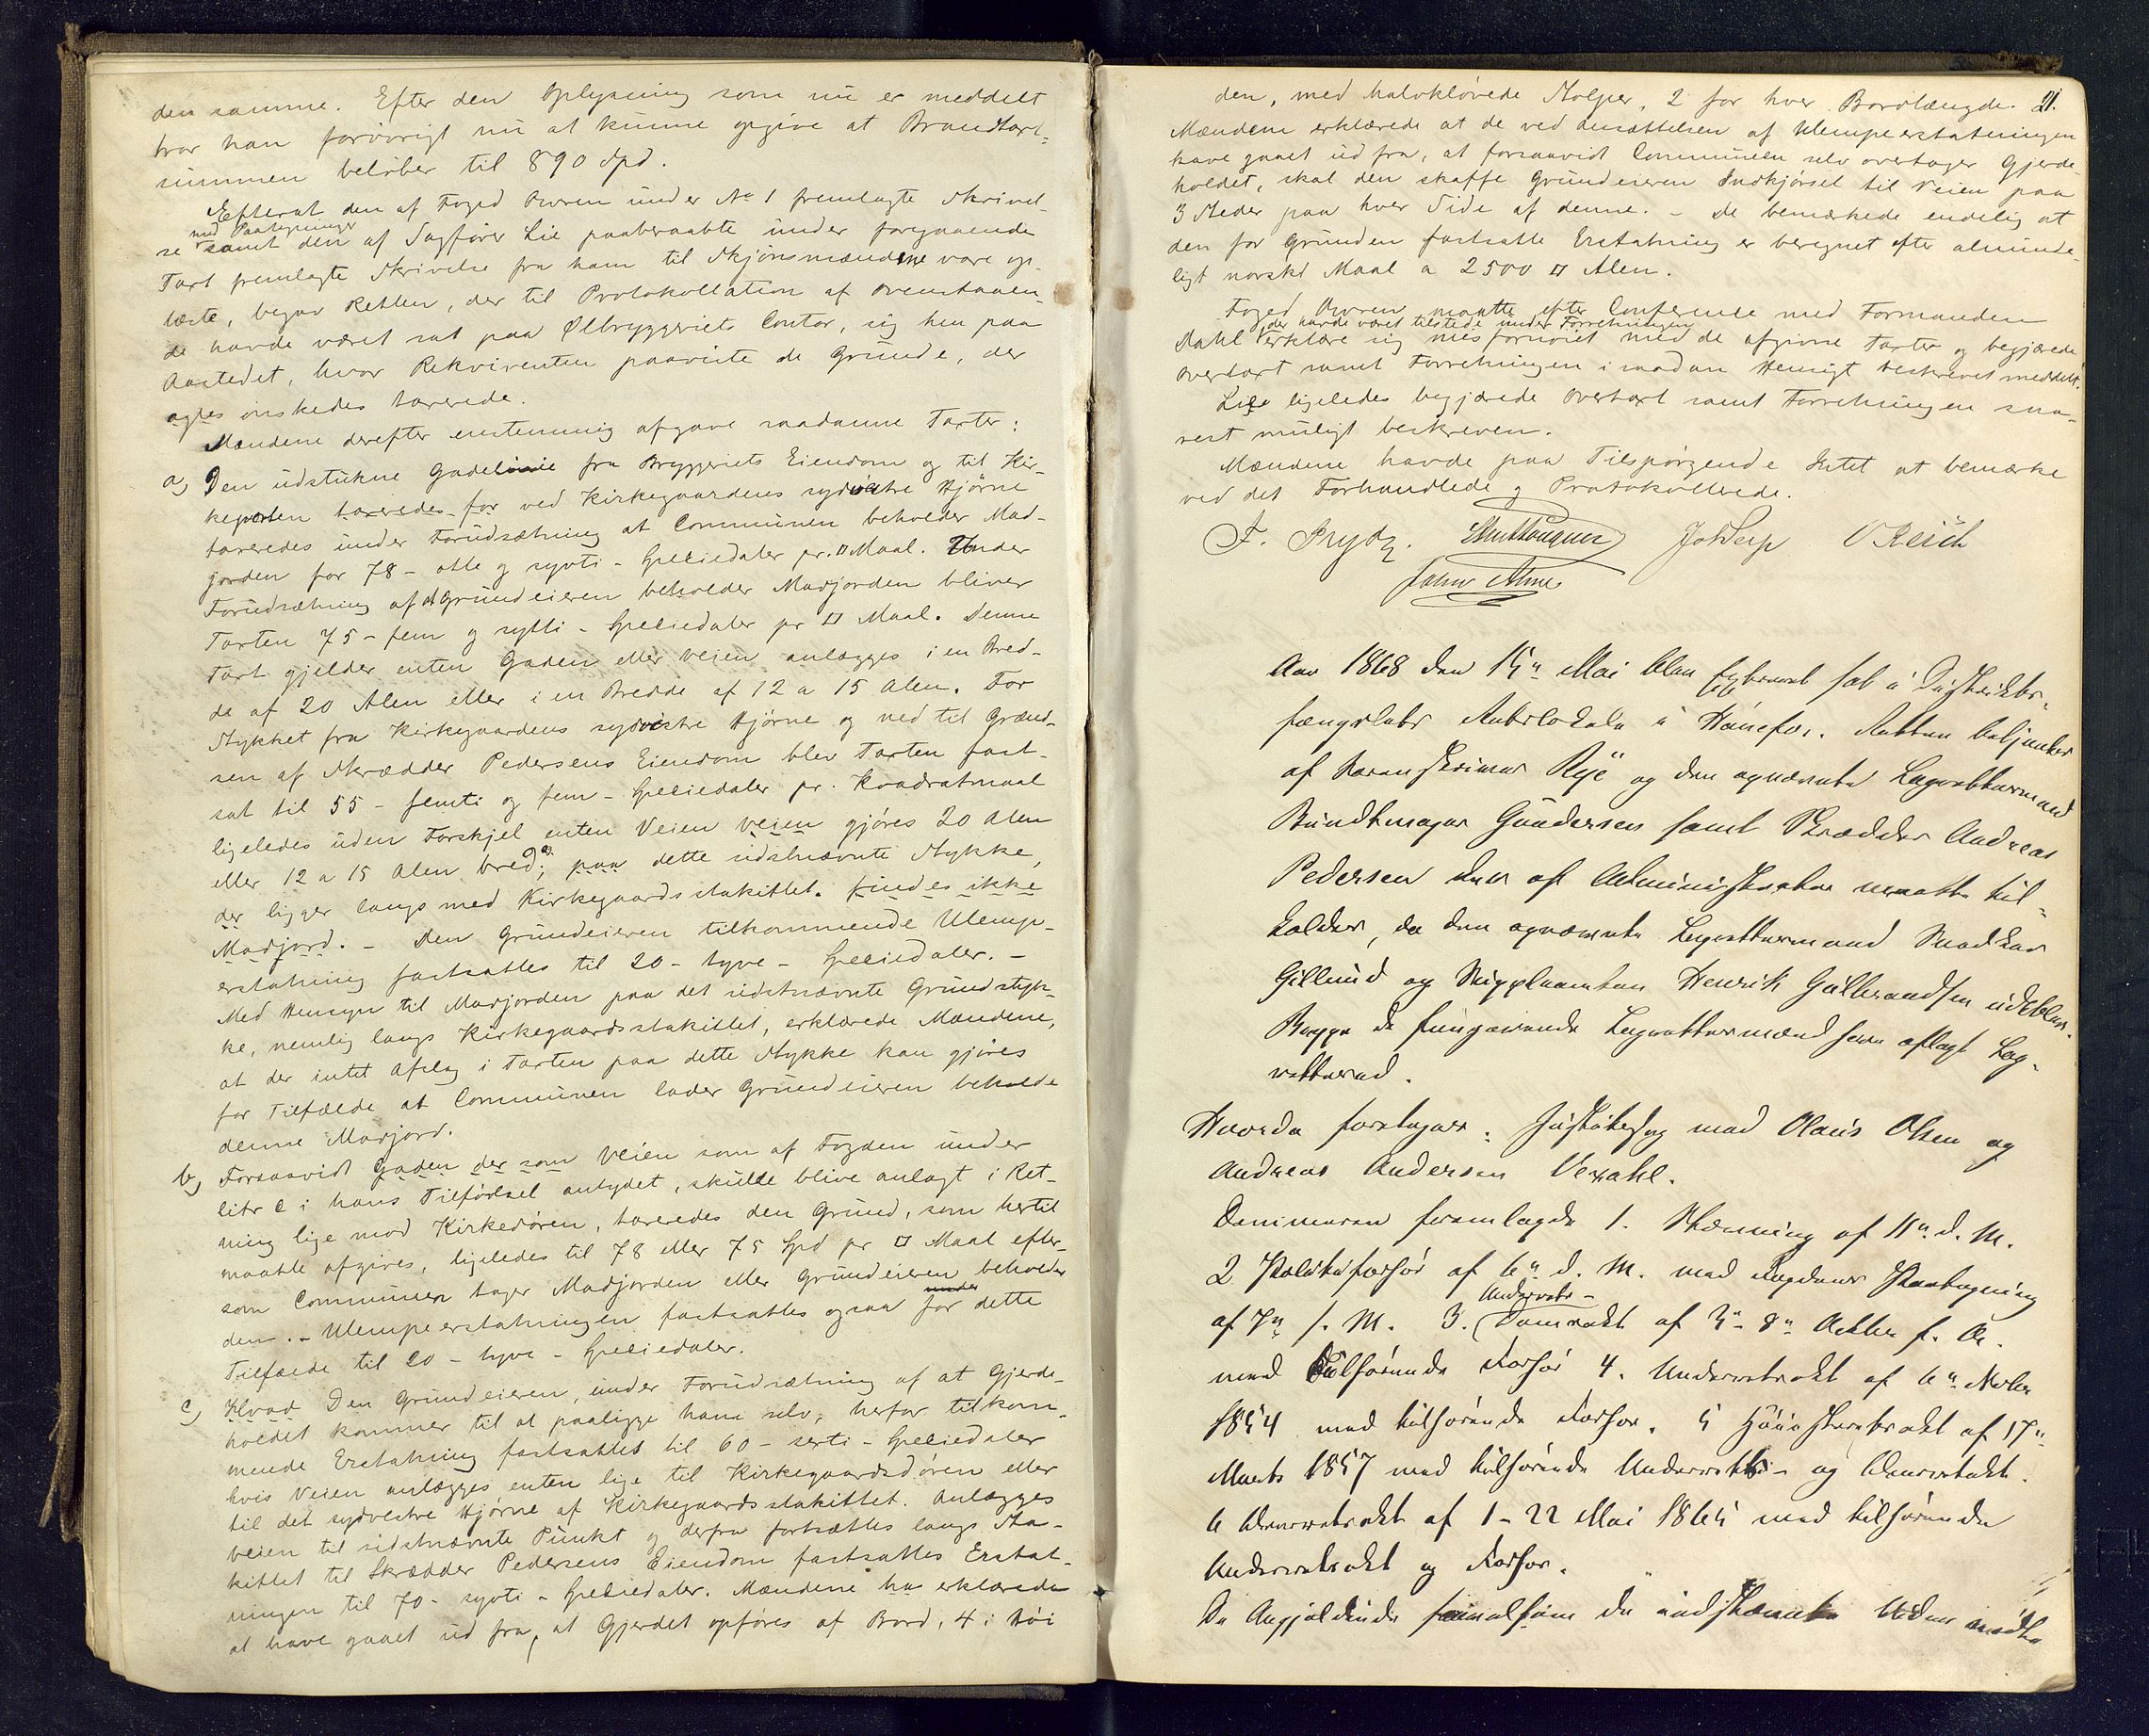 den samme. Efter den Oplysning som nu er meddelt
tror han forøvrigt nu at kunne opgive at Brandtaxt-
summen beløber til 890 Spd.
Efterat den af Foged Owren under No 1 fremlagte Skrivel-
med Paategninger
se samt den af Sagfører Lie paaberaabte under foregaaende
Taxt fremlagte Skrivelse fra ham til Skjønsmændene vare op-
læste, begav Retten, der til Protokollation af Ovenstaaen-
de havde været sat paa Ølbryggeriets Contor, sig hen paa
Aastedet, hvor Rekvirenten paaviste de Grunde, der
agtes ønskedes taxerede.
Mændene derefter enstemmig afgave saadanne Taxter:
a) Den udstukne Gadelinie fra Bryggeriets Eiendom og til Kir-
keporten taxeredes for ved Kirkegaardens sydvestre Hjørne
taxeredes under Forudsætning at Communen beholder Mad-
jorden for 78 - otte og sytti - Speciedaler pr. □ Maal. Under
Forudsætning af at Grundeieren beholder Madjorden bliver
Taxten 75 - fem og sytti - Speciedaler pr □ Maal. Denne
Taxt gjelder enten Gaden eller Veien anlægges i en Bred-
de af 20 Alen eller i en Bredde af 12 a 15 Alen. For
Stykket fra Kirkegaardens sydvestre Hjørne og ned til Grænd-
sen af Skrædder Pedersens Eiendom blev Taxten fast-
sat til 55 - femti og fem - Speciedaler pr. Kvadratmaal
ligeledes uden Forskjel enten Veien veien gjøres 20 Alen
eller 12 a 15 Alen bred; paa dette sidstnævnte Stykke,
der ligger langs med Kirkegaardsstakittet. findes ikke
Madjord. - Den Grundeieren tilkommende Ulempe-
erstatning fastsattes til 20 - tyve - Speciedaler. -
Med Hensyn til Madjorden paa det sidstnævnte Grundstyk-
ke, nemlig langs Kirkegaardsstakittet, erklærede Mændene,
at der intet Afslag i Taxten paa dette Stykke kan gjøres
for Tilfælde at Communen lader Grundeieren beholde
denne Madjord.
b) Forsaavidt Gaden der som Veien som af Fogden under
litr c i hans Tilførsel antydet, skulde blive anlagt i Ret-
ning lige mod Kirkedøren, taxeredes den Grund, som hertil
maatte afgives, ligeledes til 78 eller 75 Spd pr □ Maal efter-
som Communen tager Madjorden eller Grundeieren beholder
den. - Ulempeerstatningen fastsattes ogsaa for dette
Tilfælde til 20 - tyve - Speciedaler.
c) Hvad Den Grundeieren, under Forudsætning af at Gjerde-
holdet kommer til at paaligge ham selv, herfor tilkom-
mende Erstatning fastsattes til 60 - sexti - Speciedaler
hvis Veien anlægges enten lige til Kirkegaardsdøren eller
til det sydvestre Hjørne af Kirkegaardsstakittet. Anlægges
Veien til sidstnævnte Punkt og derfra fortsættes langs Sta-
kittet til Skrædder Pedersens Eiendom fastsattes Erstat-
ningen til 70 - sytti - Speciedaler. Mændene ha erklærede
at have gaaet ud fra, at Gjerdet opføres af Bord, 4 i Høi
21.
den, med halvkløvede Stolper, 2 for hver Bordlængde.
Mændene erklærede at de ved Ansættelsen af Ulempeerstatningen
have gaaet ud fra, at forsaavidt Communen selv overtager Gjerde-
holdet, skal den skaffe Grundeieren Indkjørsel til Veien paa
3 Steder paa hver Side af denne. - De bemærkede endelig at
den for Grunden fastsatte Erstatning er beregnet efter alminde-
ligt norskt Maal a 2500 □ Alen.
Foged Owren maatte efter Conference med Formanden
der havde været tilstede under Forretningen
Stahl erklære sig misfornøiet med de afgivne Taxter og begjærede
Overtaxt samt Forretningen i saadan Hensigt beskrevet meddelt.
Lie ligeledes begjærede Overtaxt samt Forretningen sna-
rest muligt beskreven.
Mændene havde paa Tilspørgende Intet at bemærke
ved det Forhandlede og Protokollerede.
F. Prydz.
Aar 1868 den 15de Mai blev Extraret sat i Distrikts-
fængslets Retslokale i Hønefos. Retten betjentes
af Sorenskriver Rye og den opnævnte Lagrettesmand
Bundtmager Gundersen samt Skrædder Andreas
Pedersen der af Administrator maatte til-
kaldes, da den opnævnte Lagrettesmand Snedker
Gillund og Henrik Gulbrandsen udebleve.
Begge de fungerende Lagrettesmænd have aflagt Lag-
retteed.
Hvorda foretages: Justitssag mod Olaus Olsen og
Andreas Andersen Vexahl.
Dommeren fremlagde 1. Stævning af 11te d. M.
2 Politiforhør af 6te d. M. med Fogdens Paategning
af 7de s. M. 3. Underrets-
Domsakt af 5 - 8de Oktbr f. A.
med tilhørende Forhør 4. Underretsakt af 6te Novbr
1854 med tilhørende Forhør. 5 Høiesteretsakt af 17de
Marts 1857 med tilhørende Underrets- og Overretsakt.
6 Overretsakt af 1 - 22 Mai 1865 med tilhørende
Underretsakt og Forhør.
De Angjældende saavelsom de indstævnte Vidner mødte